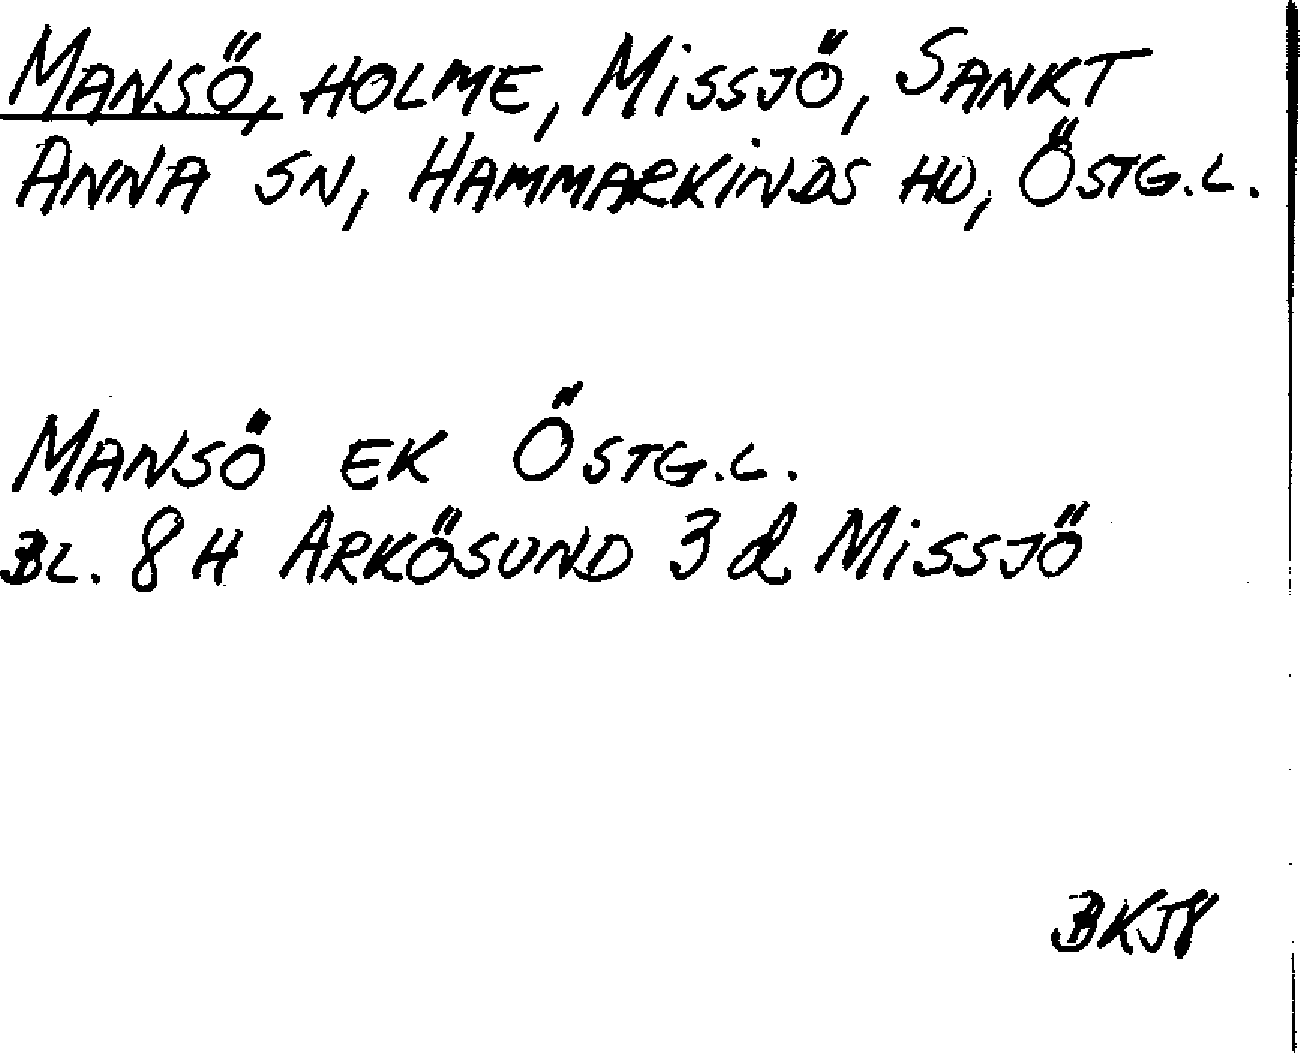 MANSÖ, HOLME, MISSJÖ, SANKT
ANNA SN, HAMMARKINDS HD, ÖSTG.L.
MANSÖ EK ÖSTG.L.
BL. 8 H ARKÖSUND 3 d MISSJÖ